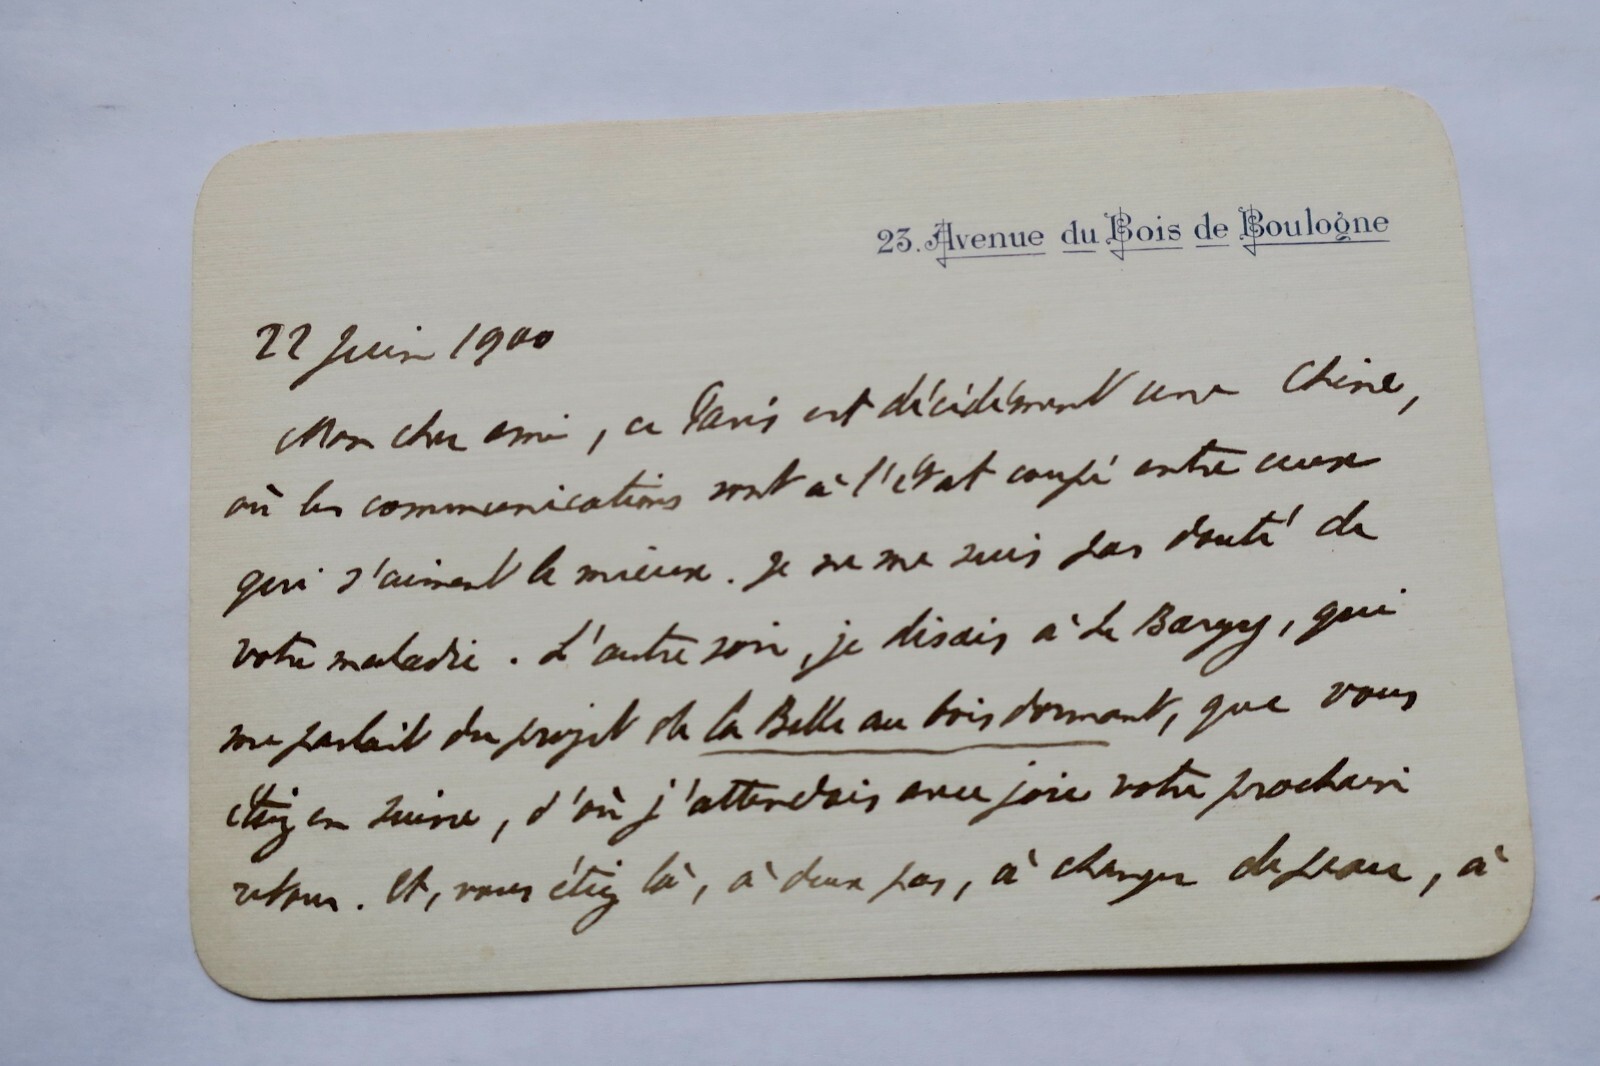 23. Avenue du Bois de Boulogne
22 juin 1900
Mon cher ami, ce Paris est décidément une Chine,
où les communications sont à l'état coupé entre ceux
qui s'aiment le mieux. Je ne me suis pas douté de
votre maladie. L'autre soir, je disais à Le Bargy, qui
me parlait du projet de la Belle au bois dormant, que vous
étiez en Suisse, d'où j'attendais avec joie votre prochain
retour. Et, vous étiez là, à deux pas, à changer de peau, à